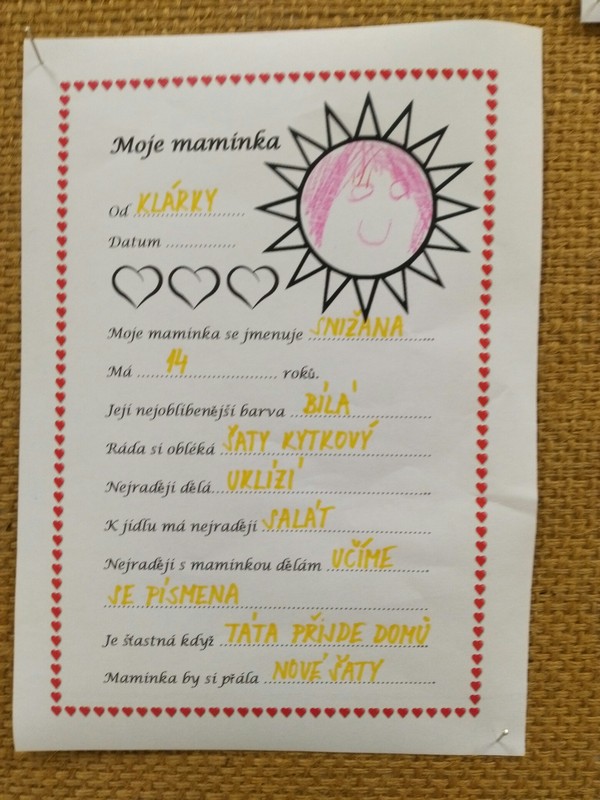 Moje maminka
Od KLÁRKY
Datum
Moje maminka se jmenuje SNIŽANA
Má 14 roků.
Její nejoblíbenější barva BÍLÁ
Ráda si obléká ŠATY KYTKOVÝ
Nejraději dělá UKLÍZÍ
K jídlu má nejraději SALÁT
Nejraději s maminkou dělám UČÍME
SE PÍSMENA
Je šťastná když TÁTA PŘIJDE DOMŮ
Maminka by si přála NOVÉ ŠATY